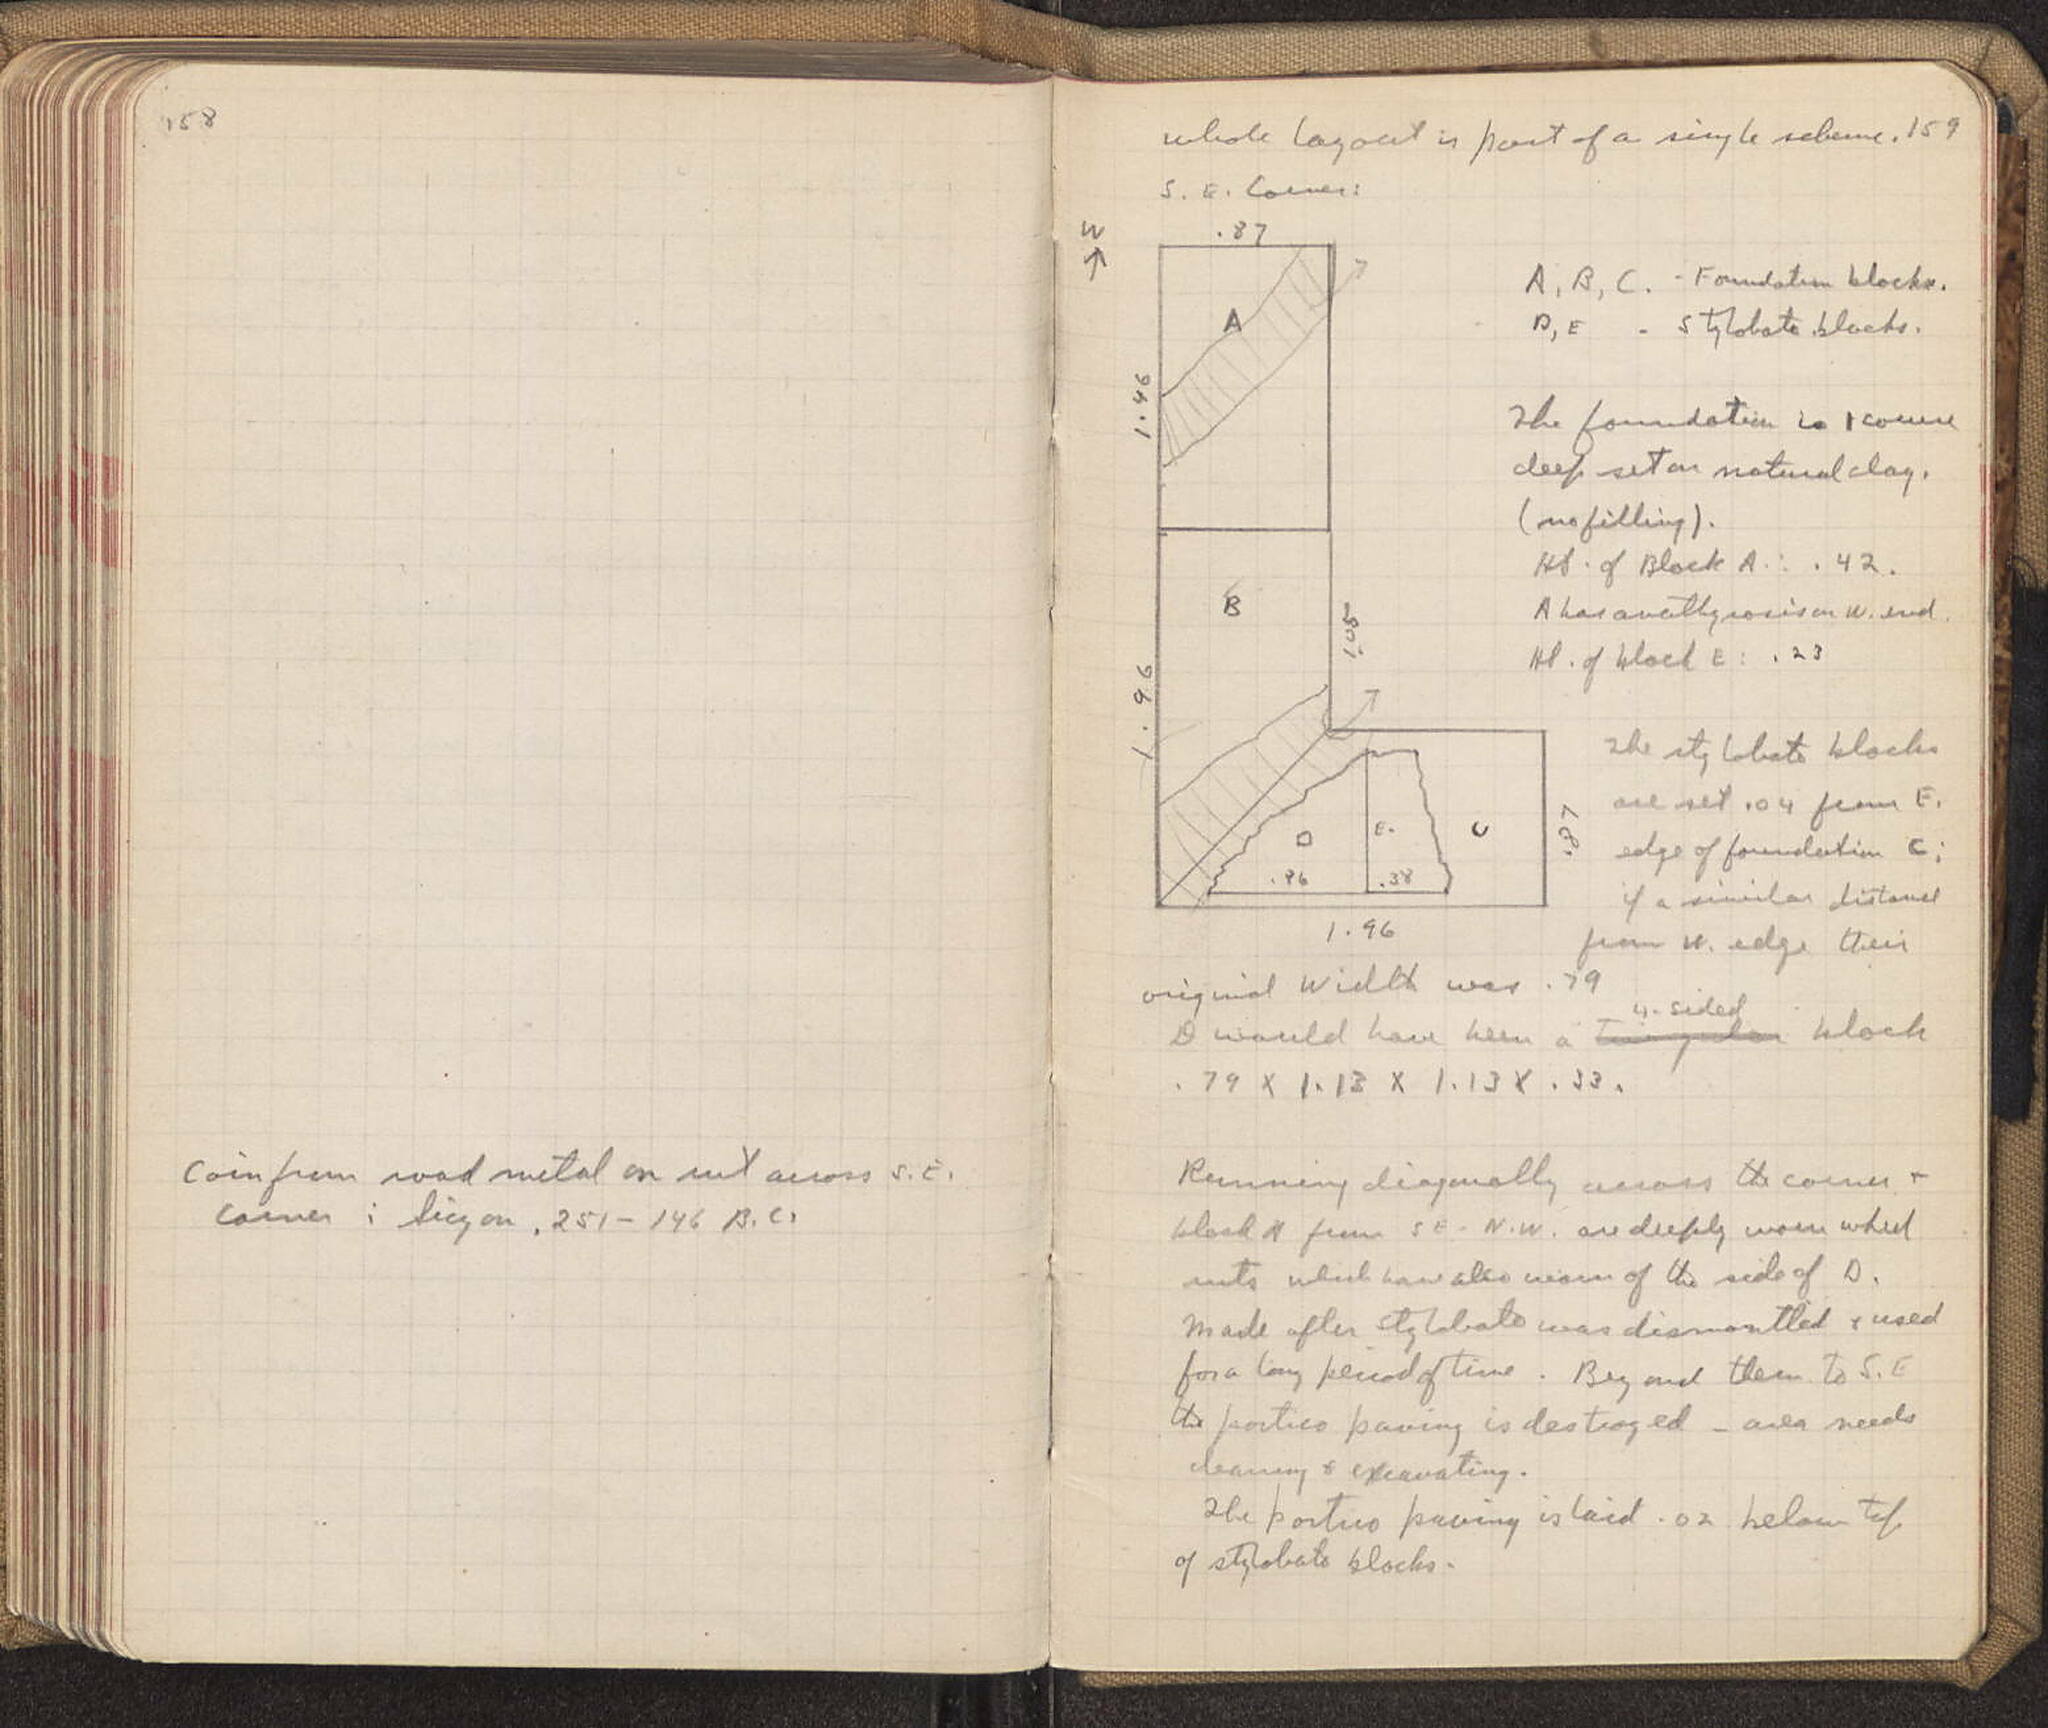 158
Coin from road metal on rut across S.E.
Corner : Sicyon, 251-146 B.C.
whole layout is part of a single scheme. 159
S. E. Corner:
W
.87
A
1.46
B
1.96
1.08
D
E.
C
.86
.38
.87
1.96
A, B, C. - Foundation blocks.
D, E - Stylobate blocks.
The foundation is 1 course
deep set on natural clay.
(no filling).
Ht. of Block A : .42.
A has anathyrosis on W. end.
Ht. of block E : .23
The stylobate blocks
are set .04 from E.
edge of foundation C;
if a similar distance
from W. edge their
original width was .79
4-sided
D would have been a triangular block
.79 X 1.13 X 1.13 X .33.
Running diagonally across the corner +
block A from SE - N.W. are deeply worn wheel
ruts which have also worn of the side of D.
Made after stylobate was dismantled + used
for a long period of time. Beyond them to S.E
the portico paving is destroyed - area needs
cleaning & excavating.
The portico paving is laid .02 below top
of stylobate blocks.